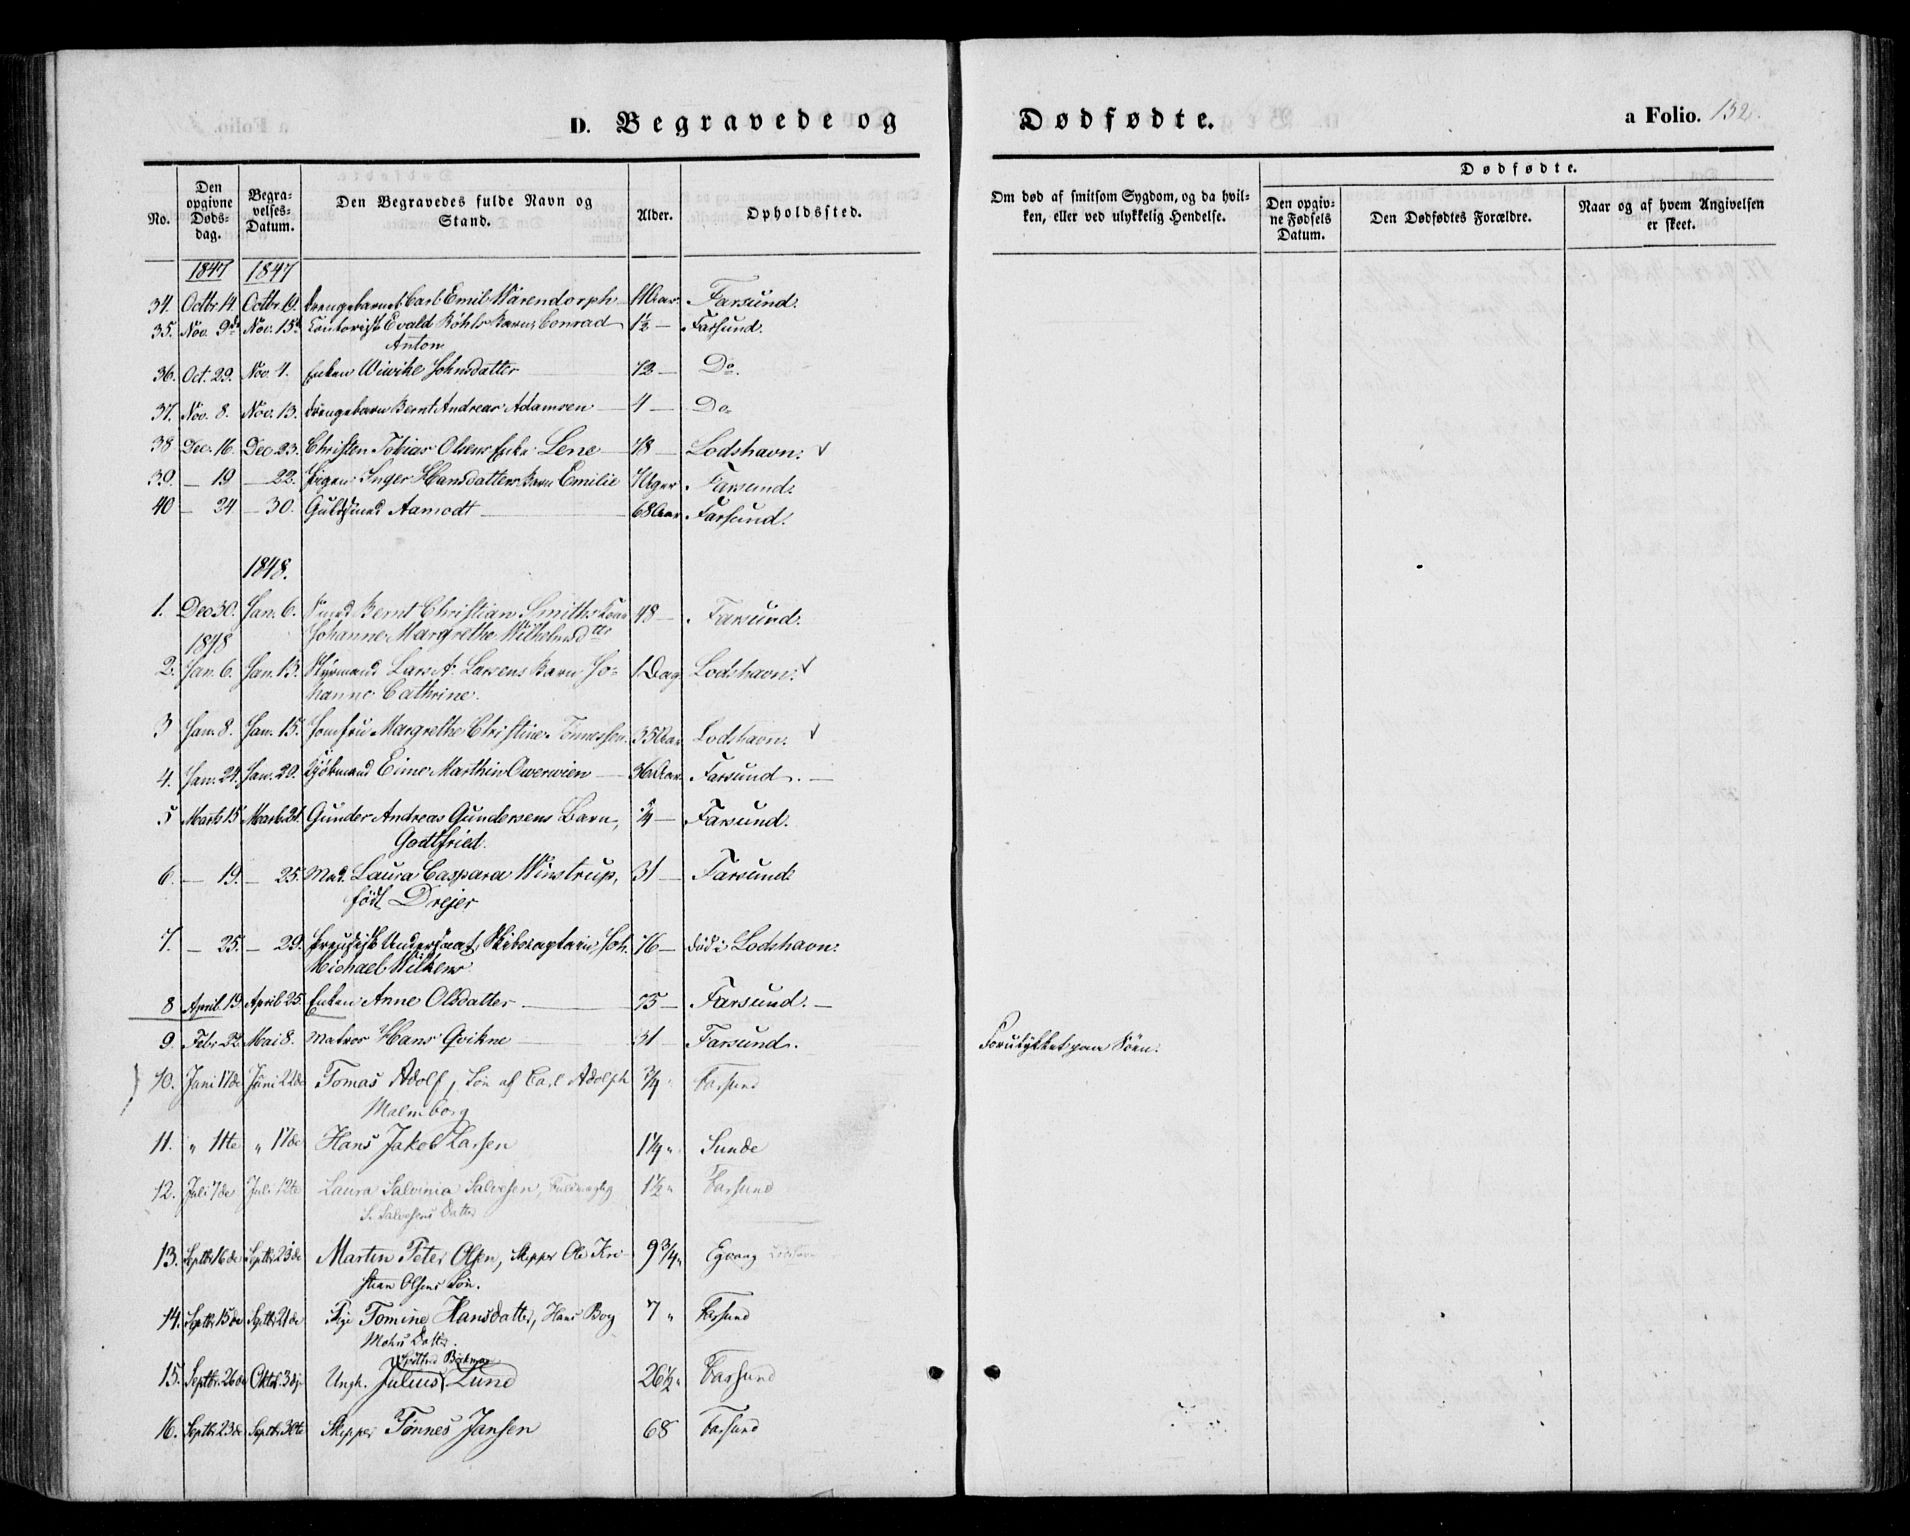 D. Begravede og Dødfødte. a Folio. 132.
No. Den opgivne Døds-dag. Begra-velses-Datum. Den Begravedes fulde Navn og Stand. Alder. Opholdssted. Om død af smitsom Sygdom, og da hvil-ken, eller ved ulykkelig Hendelse. Dødfødte. Den opgiv-ne Fødsels Datum. Den Dødfødtes Forældre. Naar og af hvem Angivelsen er skeet.
1847 1847
34. Octbr. 14. Octbr. 19. Drengebarnet Carl Emil Wärendorph Farsund.
35. Nov. 9de Nov. 15de Contorist Evald Röhls Barn, Conrad 1½ — Farsund.
Anton
36. Oct. 29. Nov. 4. Enken Wivike Johnsdatter 72 — Do.
37. Nov. 8. Nov. 13. Drengebarn Bernt Andreas Adamsen — 4 — Do
38 Dec. 16. Dec. 23. Christen Tobias Olsens Enke Lene 48 — Lodshavn.
39. — 19 — 22. Pigen Inger Hansdatters Barn Emilie 7 Uger Farsund.
40 — 24 — 30. Aamodt 68 Aar. Farsund.
1848.
1. Dec 30. Jan. 6. Bernt Christian Smiths Kone 48 — Farsund.
1848 Johanne Margrethe Wilhelmsdtr
2. Jan. 6. Jan. 13. Styrmand Lars A. Larsens Barn Jo- 1 Dag Lodshavn.
hanne Cathrine.
3 Jan. 8. Jan. 15. Jomfru Margrethe Christine Tönnessen. 35 Aar Lodshavn.
4. Jan. 24. Jan. 29. Kjøbmand Eime Marthin Owerwien — 36 Aar. Farsund. —
5 Marts 15 Marts 21. Gunder Andreas Gundersens Barn, ¾ — Farsund.
Godtfried.
6. — 19. — 25. Mad. Laura Caspara Winstrup, 31 — Farsund
født Drejer
7. — 25. — 29. Preusisk Undersaat, Skibscaptain, Joh. 76 — død i Lodshavn.
Michael Wilken
8 April 19. April 25. Enken Anne Olsdatter 75 — Farsund. —
9. Febr. 22. Mai 8. Matros Hans Qvikne 31 Farsund. Forulykket paa Söen.
10. Juni 17de Juni 22de Tomas Adolf, Søn af Carl Adolph ¾ " Farsund
Malmborg
11. " 11te " 17de Hans Jakob Larsen 1¼ " Sunde
12. Juli 7de Juli 12te Laura Salvinia Salvesen, Fuldmægtig 1½ " Farsund
S. Salvesens Datter
13. Septbr 16de Septbr 23de Martin Peter Olsen, Skipper Ole Kri- 9¾ " Egvaag Lodshavn
stian Olsens Søn.
14. Septbr 15de Septbr 21de Pige Tomine Hansdatter, Hans Boy 7 " Farsund
Mohrs Datter.
15. Septbr. 26de Oktbr. 3dje Ungk. Julius Lund 26½ " Farsund
16. Septbr 23de Septbr 30te Skipper Tønnes Jansen 68 Farsund